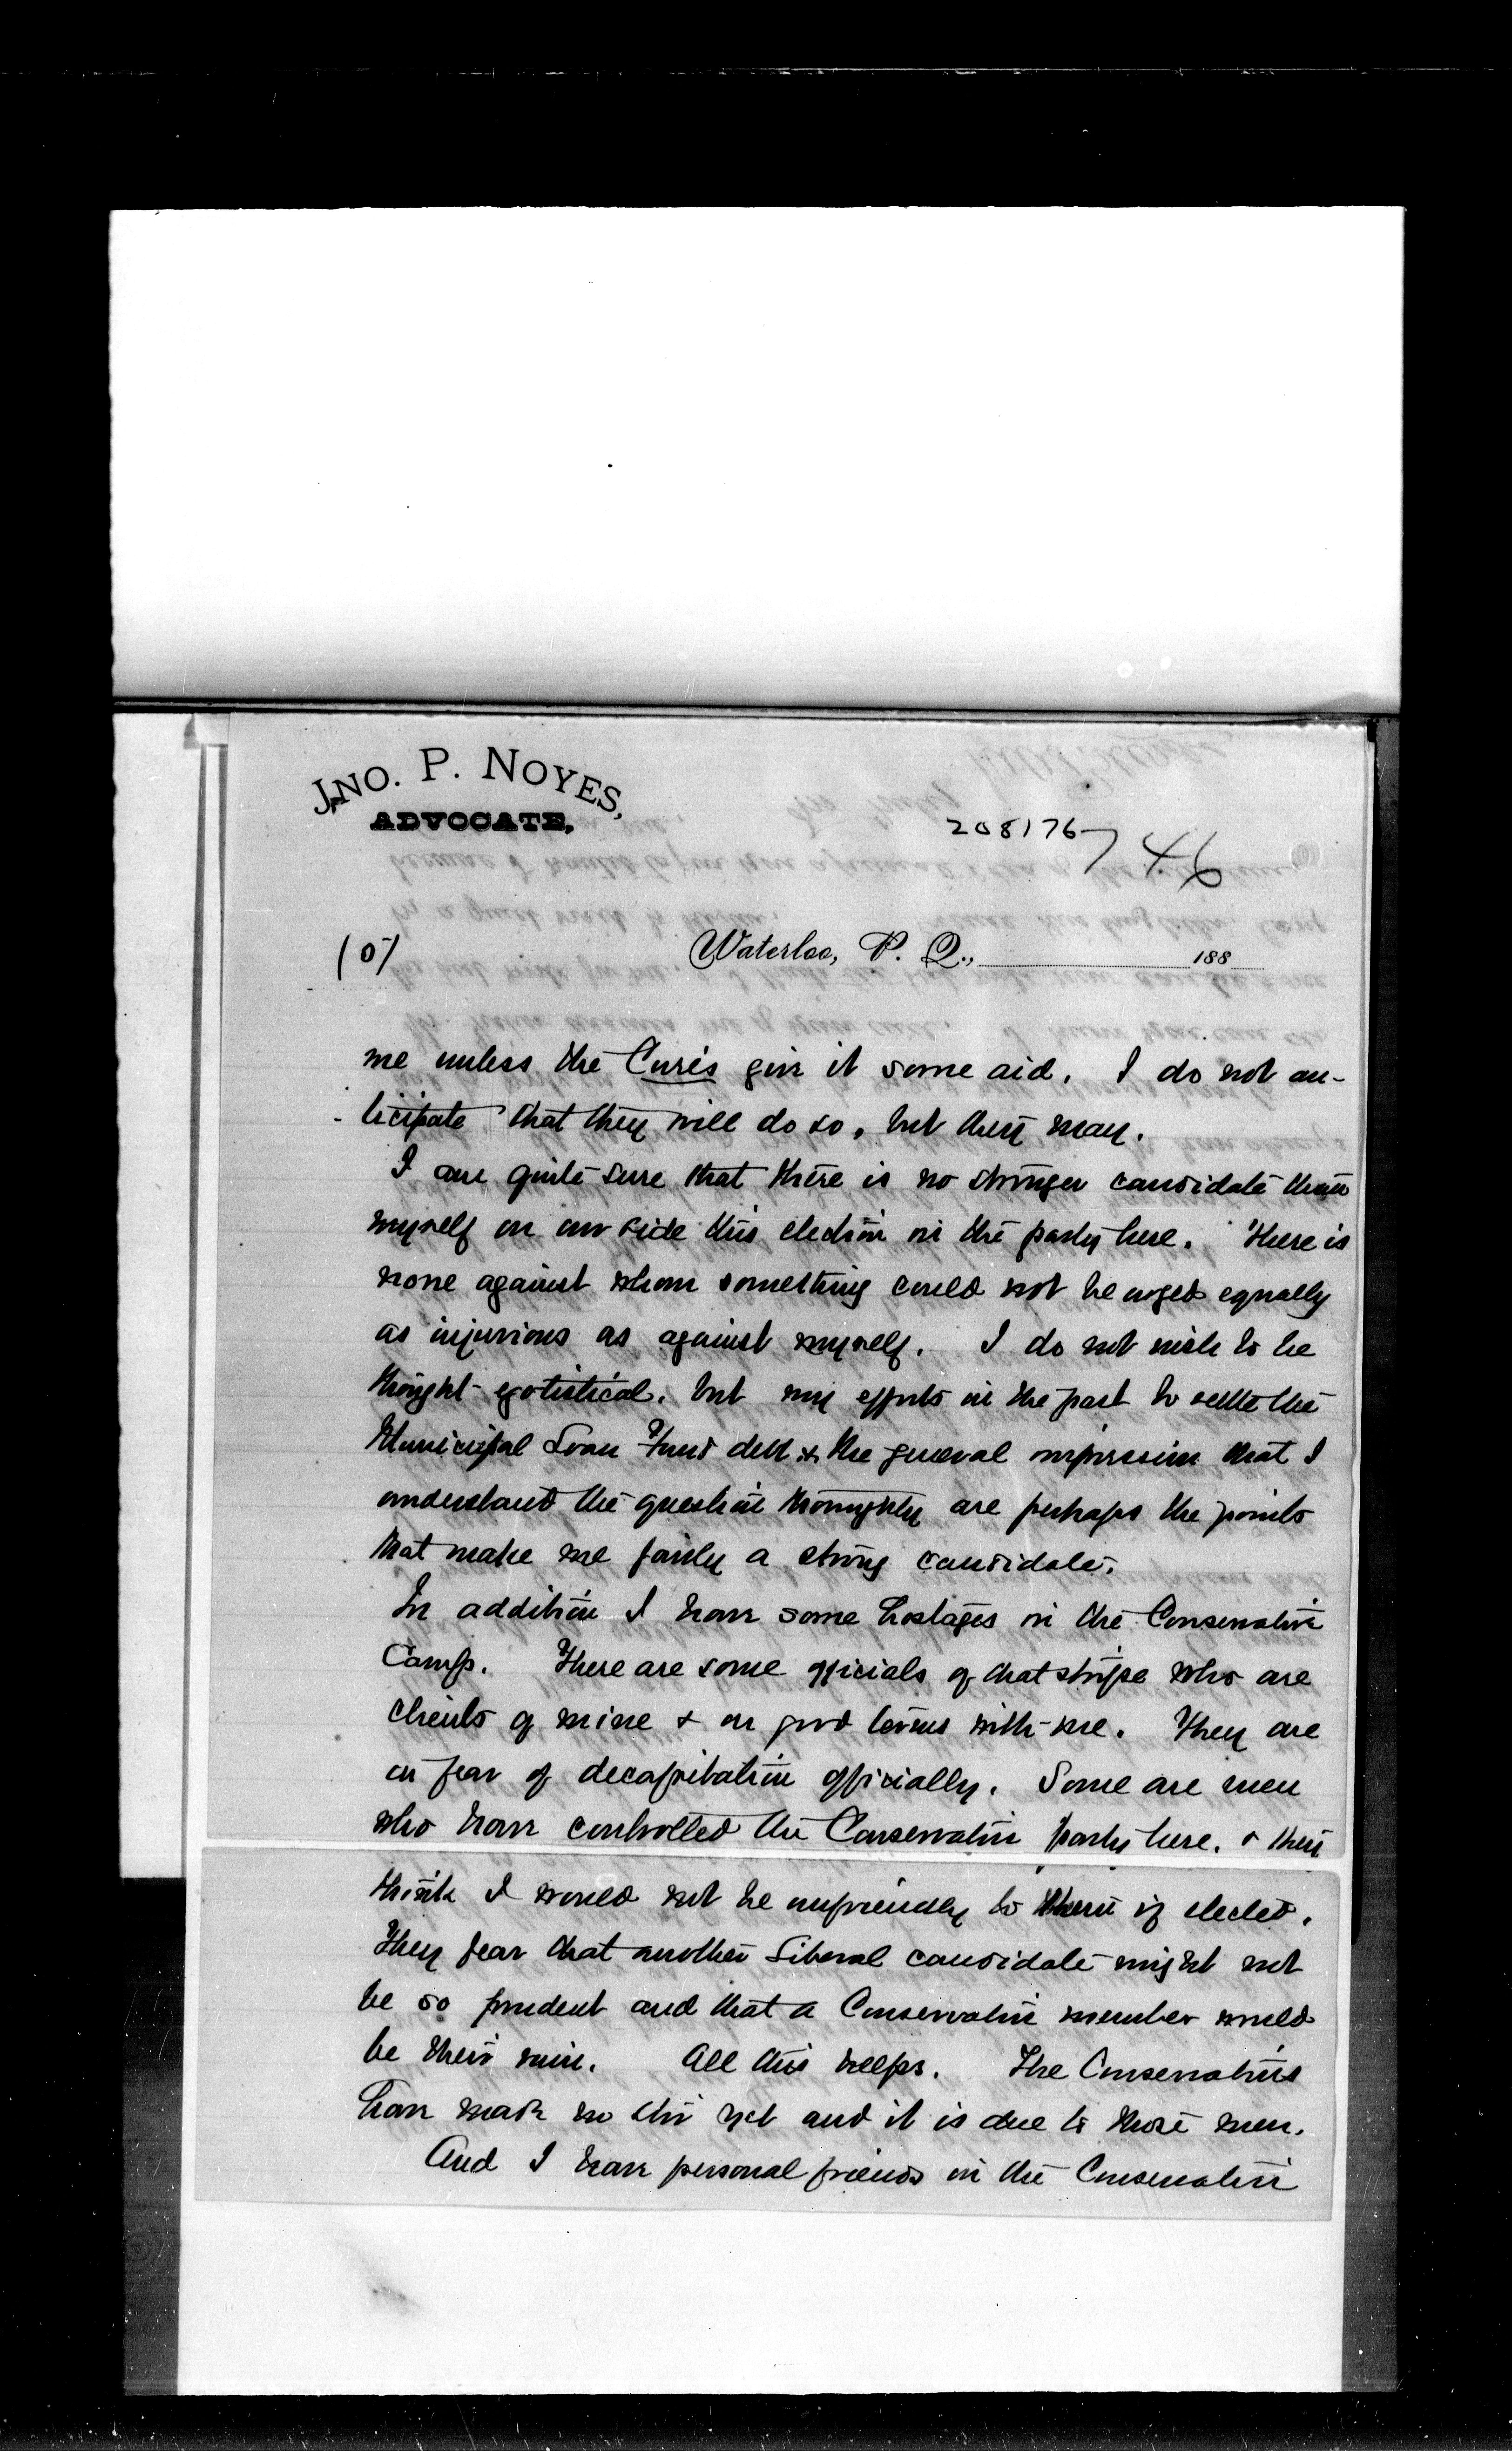 JNO. P. NOYES,
ADVOCATE,
208176
746
(5)
Waterloo, P. Q., 188
me unless the Curés give it some aid. I do not an-
ticipate that they will do so, but they may.
I am quite sure that there is no stronger candidate than
myself on our side this election in the party here. There is
none against whom something could not be urged equally
as injurious as against myself. I do not wish to be
thought egotistical, but my efforts in the past to settle the
Municipal Loan Fund debt & the general impression that I
understand the question thoroughly are perhaps the points
that make me fairly a strong candidate.
In addition I have some hostages in the Conservative
Camp. There are some officials of that stripe who are
clients of mine & on good terms with me. They are
in fear of decapitation officially. Some are men
who have controlled the Conservative party here, & they
think I would not be unfriendly to them if elected.
They fear that another Liberal candidate might not
be so prudent and that a Conservative member would
be their ruin. All this helps. The Conservatives
have made no stir yet and it is due to those men.
And I have personal friends in the Conservative